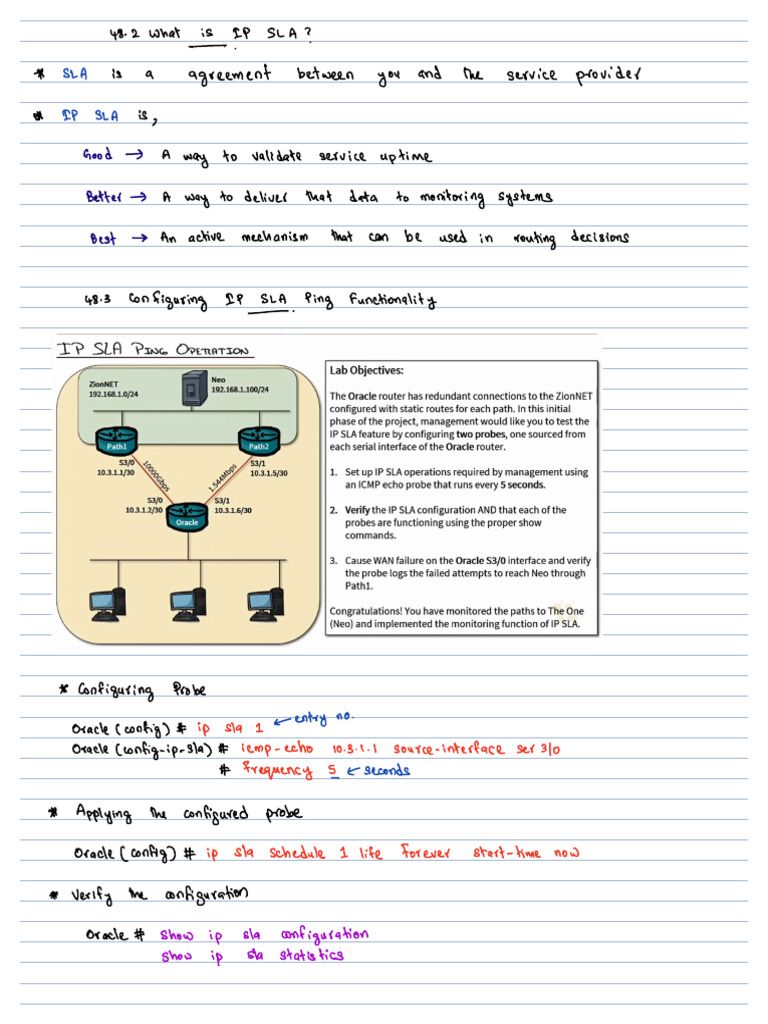 48.2 What is IP SLA?
* SLA is a agreement between you and the service provider
* IP SLA is,
Good → A way to validate service uptime
Better → A way to deliver that data to monitoring systems
Best → An active mechanism that can be used in routing decisions
48.3 Configuring IP SLA Ping Functionality
IP SLA PING OPERATION
ZionNET
192.168.1.0/24
Neo
192.168.1.100/24
Path1
Path2
S3/0
10.3.1.1/30
S3/1
10.3.1.5/30
10000Gbps
1.544Mbps
S3/0
10.3.1.2/30
S3/1
10.3.1.6/30
Oracle
Lab Objectives:
The Oracle router has redundant connections to the ZionNET
configured with static routes for each path. In this initial
phase of the project, management would like you to test the
IP SLA feature by configuring two probes, one sourced from
each serial interface of the Oracle router.
1. Set up IP SLA operations required by management using
an ICMP echo probe that runs every 5 seconds.
2. Verify the IP SLA configuration AND that each of the
probes are functioning using the proper show
commands.
3. Cause WAN failure on the Oracle S3/0 interface and verify
the probe logs the failed attempts to reach Neo through
Path1.
Congratulations! You have monitored the paths to The One
(Neo) and implemented the monitoring function of IP SLA.
* Configuring Probe
Oracle (config) # ip sla 1 ← entry no.
Oracle (config-ip-sla) # icmp-echo 10.3.1.1 source-interface ser 3/0
# frequency 5 ← seconds
* Applying the configured probe
Oracle (config) # ip sla schedule 1 life forever start-time now
* Verify the configuration
Oracle # show ip sla configuration
show ip sla statistics